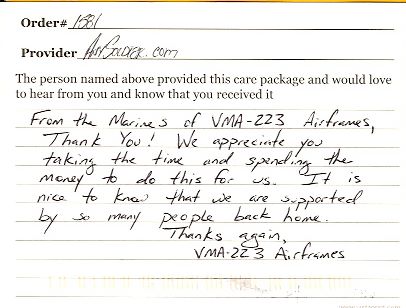 Order# 1581
Provider AnySoldier.com
The person named above provided this care package and would love
to hear from you and know that you received it
From the Marines of VMA-223 Airframes,
Thank You! We appreciate you
taking the time and spending the
money to do this for us. It is
nice to know that we are supported
by so many people back home.
Thanks again,
VMA-223 Airframes